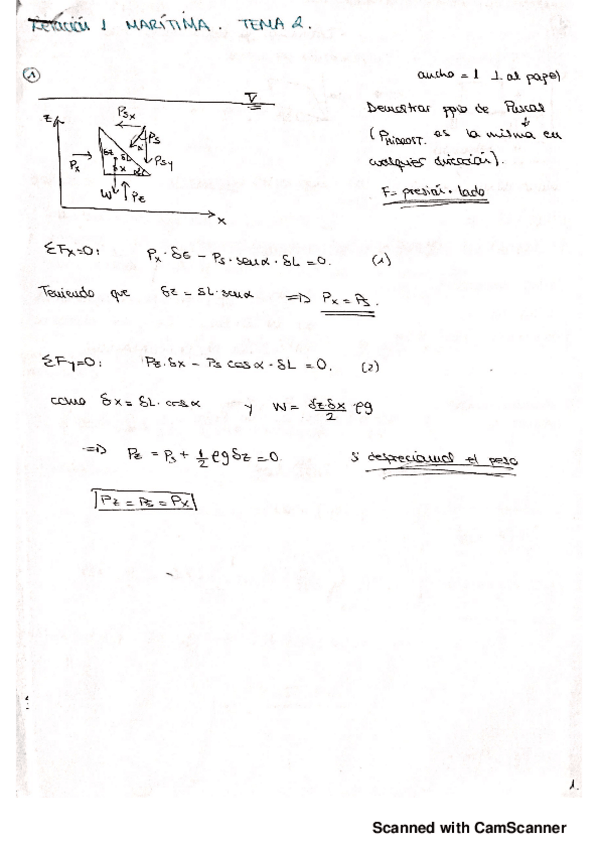 1 MARÍTIMA. TEMA 2.
1
ancho = 1 ⊥ al papel
Demostrar ppio de Pascal
(P_HIDROST. es la misma en
cualquier dirección).
F = presión · lado
z
P_Sx
P_S
P_Sy
P_x
δz
δL
δx
W
P_z
x
ΣFx=0: P_x · δz - P_s · senα · δL = 0. (1)
Teniendo que δz = δL · senα => P_x = P_s.
ΣFy=0: P_z · δx - P_s cosα · δL = 0. (2)
como δx = δL · cosα y W = δz·δx/2 ρg
=> P_z = P_s + 1/2 ρg δz = 0. si despreciamos el peso
P_z = P_s = P_x
1.
Scanned with CamScanner